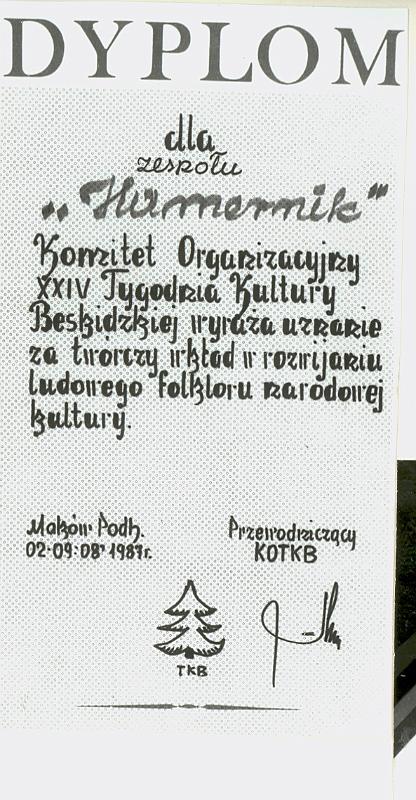 DYPLOM
dla
zespołu
„Hamernik”
Komitet Organizacyjny
XXIV Tygodnia Kultury
Beskidzkiej wyraża uznanie
za twórczy wkład w rozwijaniu
ludowego folkloru narodowej
kultury.
Maków Podh.
02-09.08' 1987r.
Przewodniczący
KOTKB
TKB